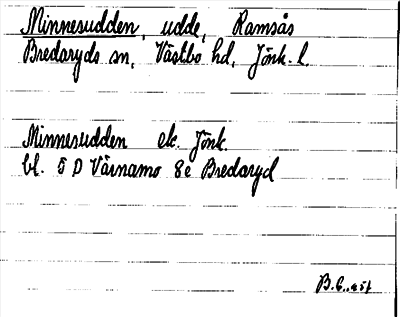 Minnesudden, udde, Ramsås
Bredaryds sn, Västbo hd, Jönk. l.
Minnesudden ek. Jönk.
bl. 5 D Värnamo 8e Bredaryd
B.C.